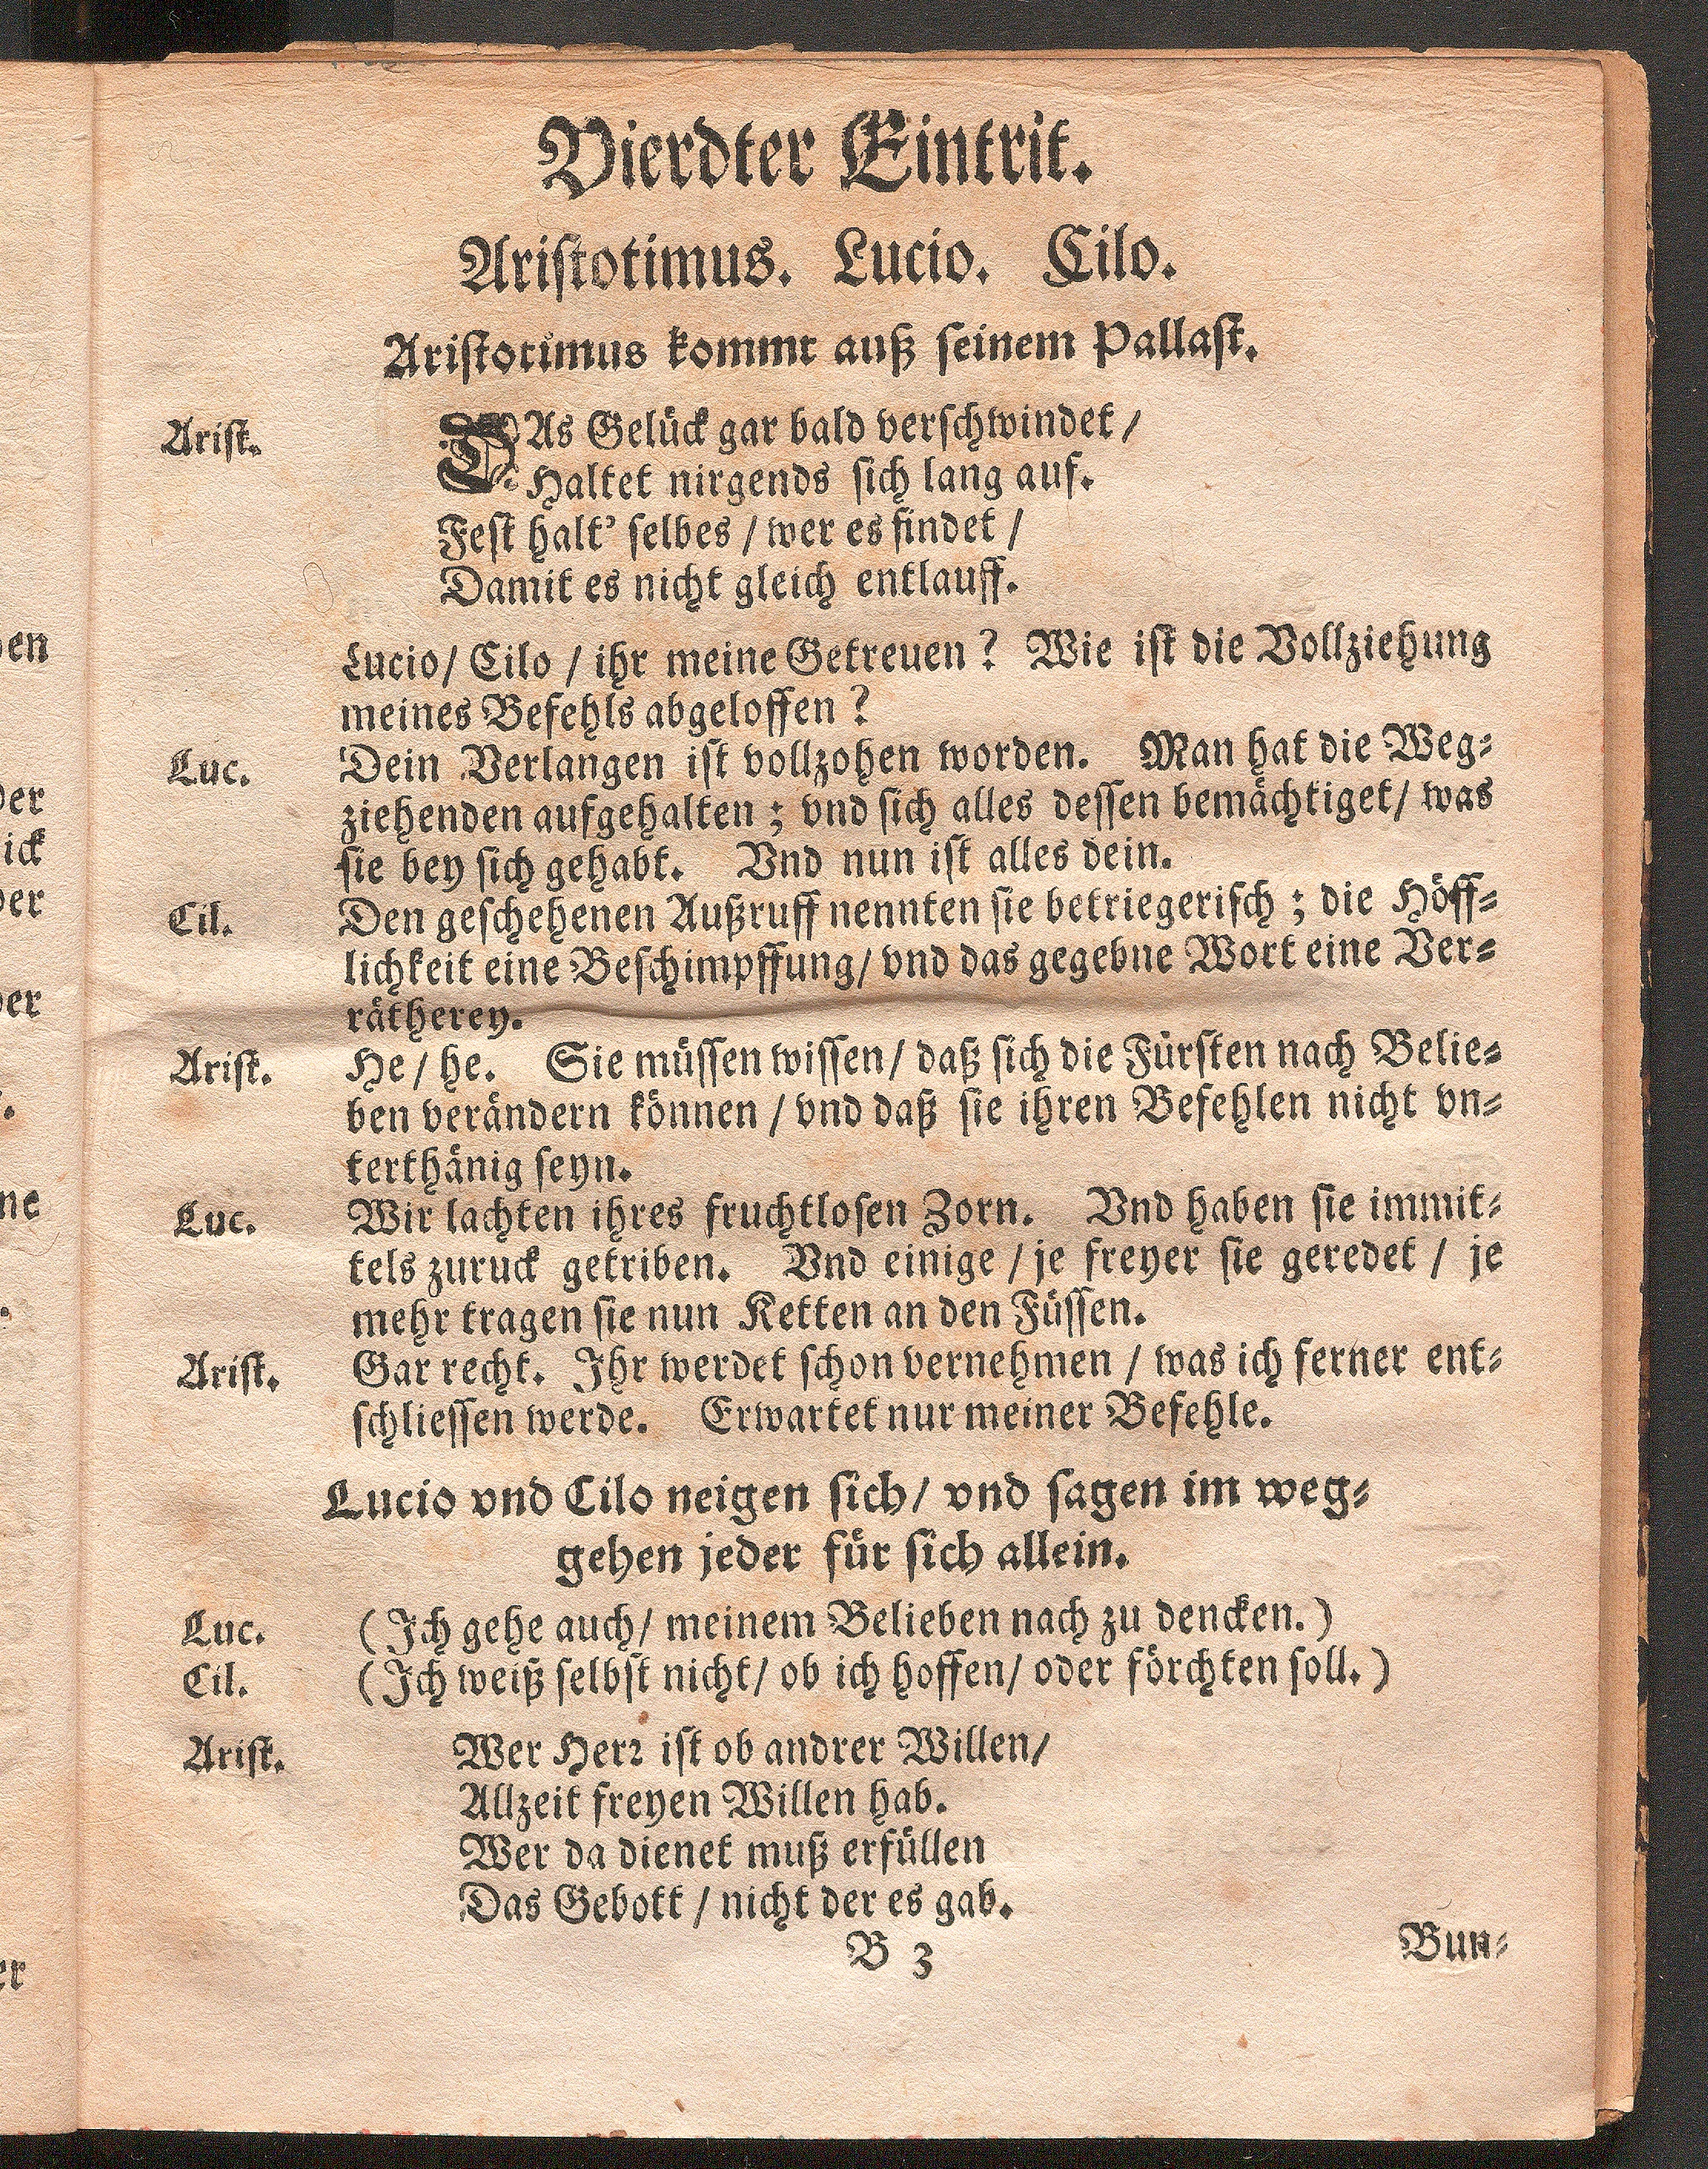 Vierdter Eintrit.
Aristotimus. Lucio. Cilo.
Aristotimus kommt auß seinem Pallast.
Arist. DAs Gelück gar bald verschwindet /
Haltet nirgends sich lang auf.
Fest halt' selbes / wer es findet /
Damit es nicht gleich entlauff.
Lucio / Cilo / ihr meine Getreuen? Wie ist die Vollziehung
meines Befehls abgeloffen?
Luc. Dein Verlangen ist vollzohen worden. Man hat die Weg-
ziehenden aufgehalten; vnd sich alles dessen bemächtiget / was
sie bey sich gehabt. Vnd nun ist alles dein.
Cil. Den geschehenen Außruff nennten sie betriegerisch; die Höff-
lichkeit eine Beschimpffung / vnd das gegebne Wort eine Ver-
rätherey.
Arist. He / he. Sie müssen wissen / daß sich die Fürsten nach Belie-
ben verändern können / vnd daß sie ihren Befehlen nicht vn-
terthänig seyn.
Luc. Wir lachten ihres fruchtlosen Zorn. Vnd haben sie immit-
tels zuruck getriben. Vnd einige / je freyer sie geredet / je
mehr tragen sie nun Ketten an den Füssen.
Arist. Gar recht. Ihr werdet schon vernehmen / was ich ferner ent-
schliessen werde. Erwartet nur meiner Befehle.
Lucio vnd Cilo neigen sich / vnd sagen im weg-
gehen jeder für sich allein.
Luc. (Ich gehe auch / meinem Belieben nach zu dencken.)
Cil. (Ich weiß selbst nicht / ob ich hoffen / oder förchten soll.)
Arist. Wer Herꝛ ist ob andrer Willen /
Allzeit freyen Willen hab.
Wer da dienet muß erfüllen
Das Gebott / nicht der es gab.
B 3 Bun-